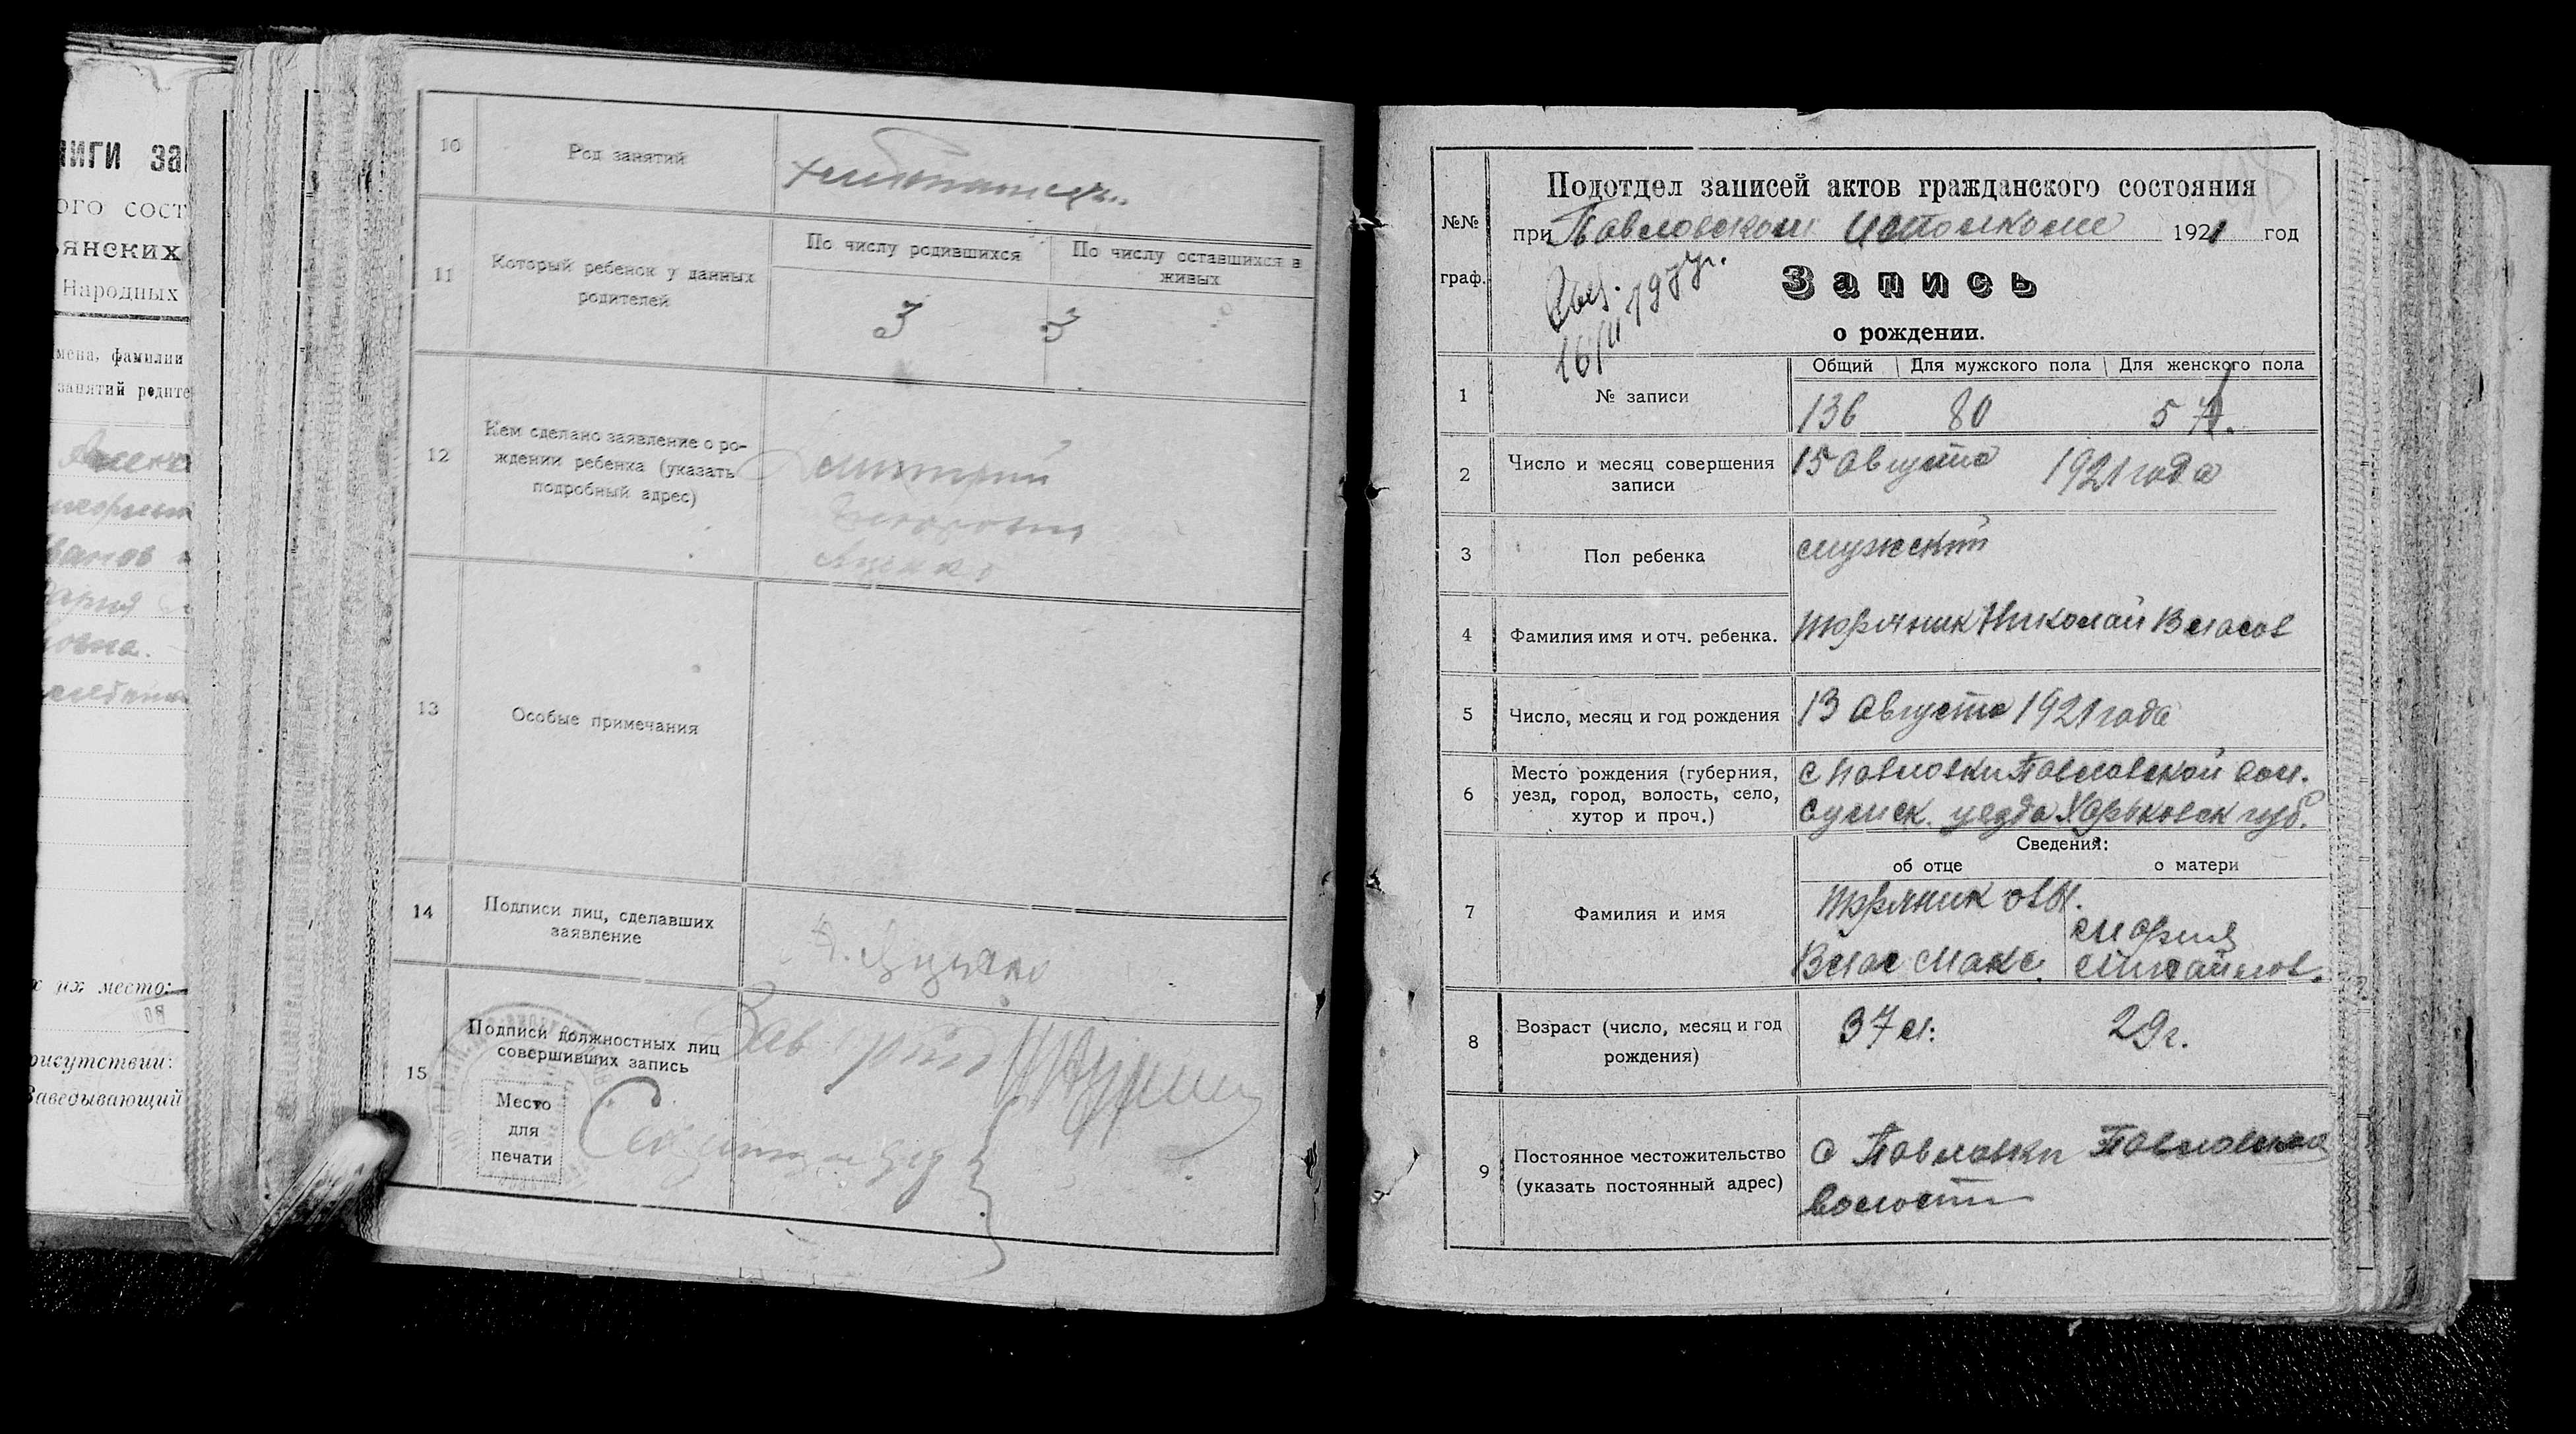 10 Род занятий
хлебопашец
11 Который ребенок у данных родителей
По числу родившихся По числу оставшихся в живых
3 3
12 Кем сделано заявление о ро-
ждении ребенка (указать
подробный адрес)
Дмитрий
Яценко
13 Особые примечания
14 Подписи лиц, сделавших
заявление
Д. Яценко
15 Подписи должностных лиц
совершивших запись
Зав
Место
для
печати
Секретарь
Подотдел записей актов гражданского состояния
№№
граф.
при Павловском Исполкоме 1921 год
16/II 1977г.
Запись
о рождении.
Общий Для мужского пола Для женского пола
1 № записи 136 80 57
2 Число и месяц совершения
записи
15 Августа 1921 года
3 Пол ребенка мужский
4 Фамилия имя и отч. ребенка. Николай Власов
5 Число, месяц и год рождения 13 Августа 1921 года
6 Место рождения (губерния,
уезд, город, волость, село,
хутор и проч.)
с Павловки Павловской вол.
Сумск. уезда Харьковск губ.
Сведения:
об отце о матери
7 Фамилия и имя
Влас Макс. Мария
Михайлов.
8 Возраст (число, месяц и год
рождения)
37 л. 29 г.
9 Постоянное местожительство
(указать постоянный адрес)
с Павловки Павловской
волости
ниги за
ого сост
янских
Народных
мена, фамилии
занятий родите
их место:
рисутствии:
Заведывающий